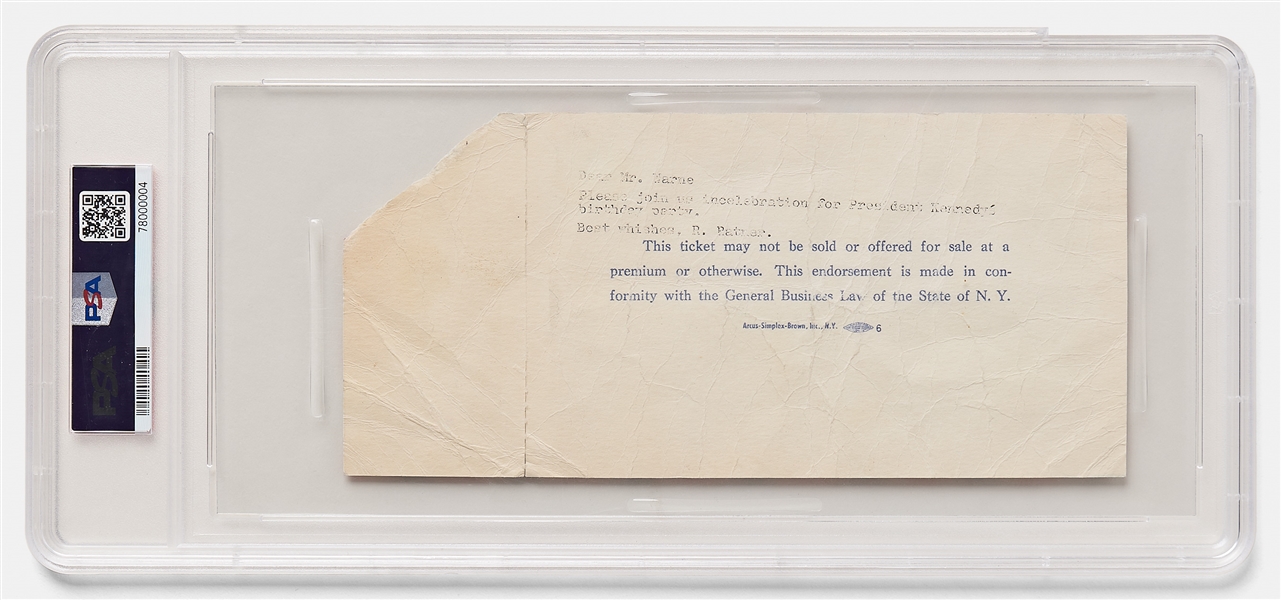 78000004
PSA
PSA
Dear Mr. Warne
Please join us incelebration for President Kennedys
birthday party.
Best whishes, R. Ratner.
This ticket may not be sold or offered for sale at a
premium or otherwise. This endorsement is made in con-
formity with the General Business Law of the State of N. Y.
Arcus-Simplex-Brown, Inc., N.Y. 6